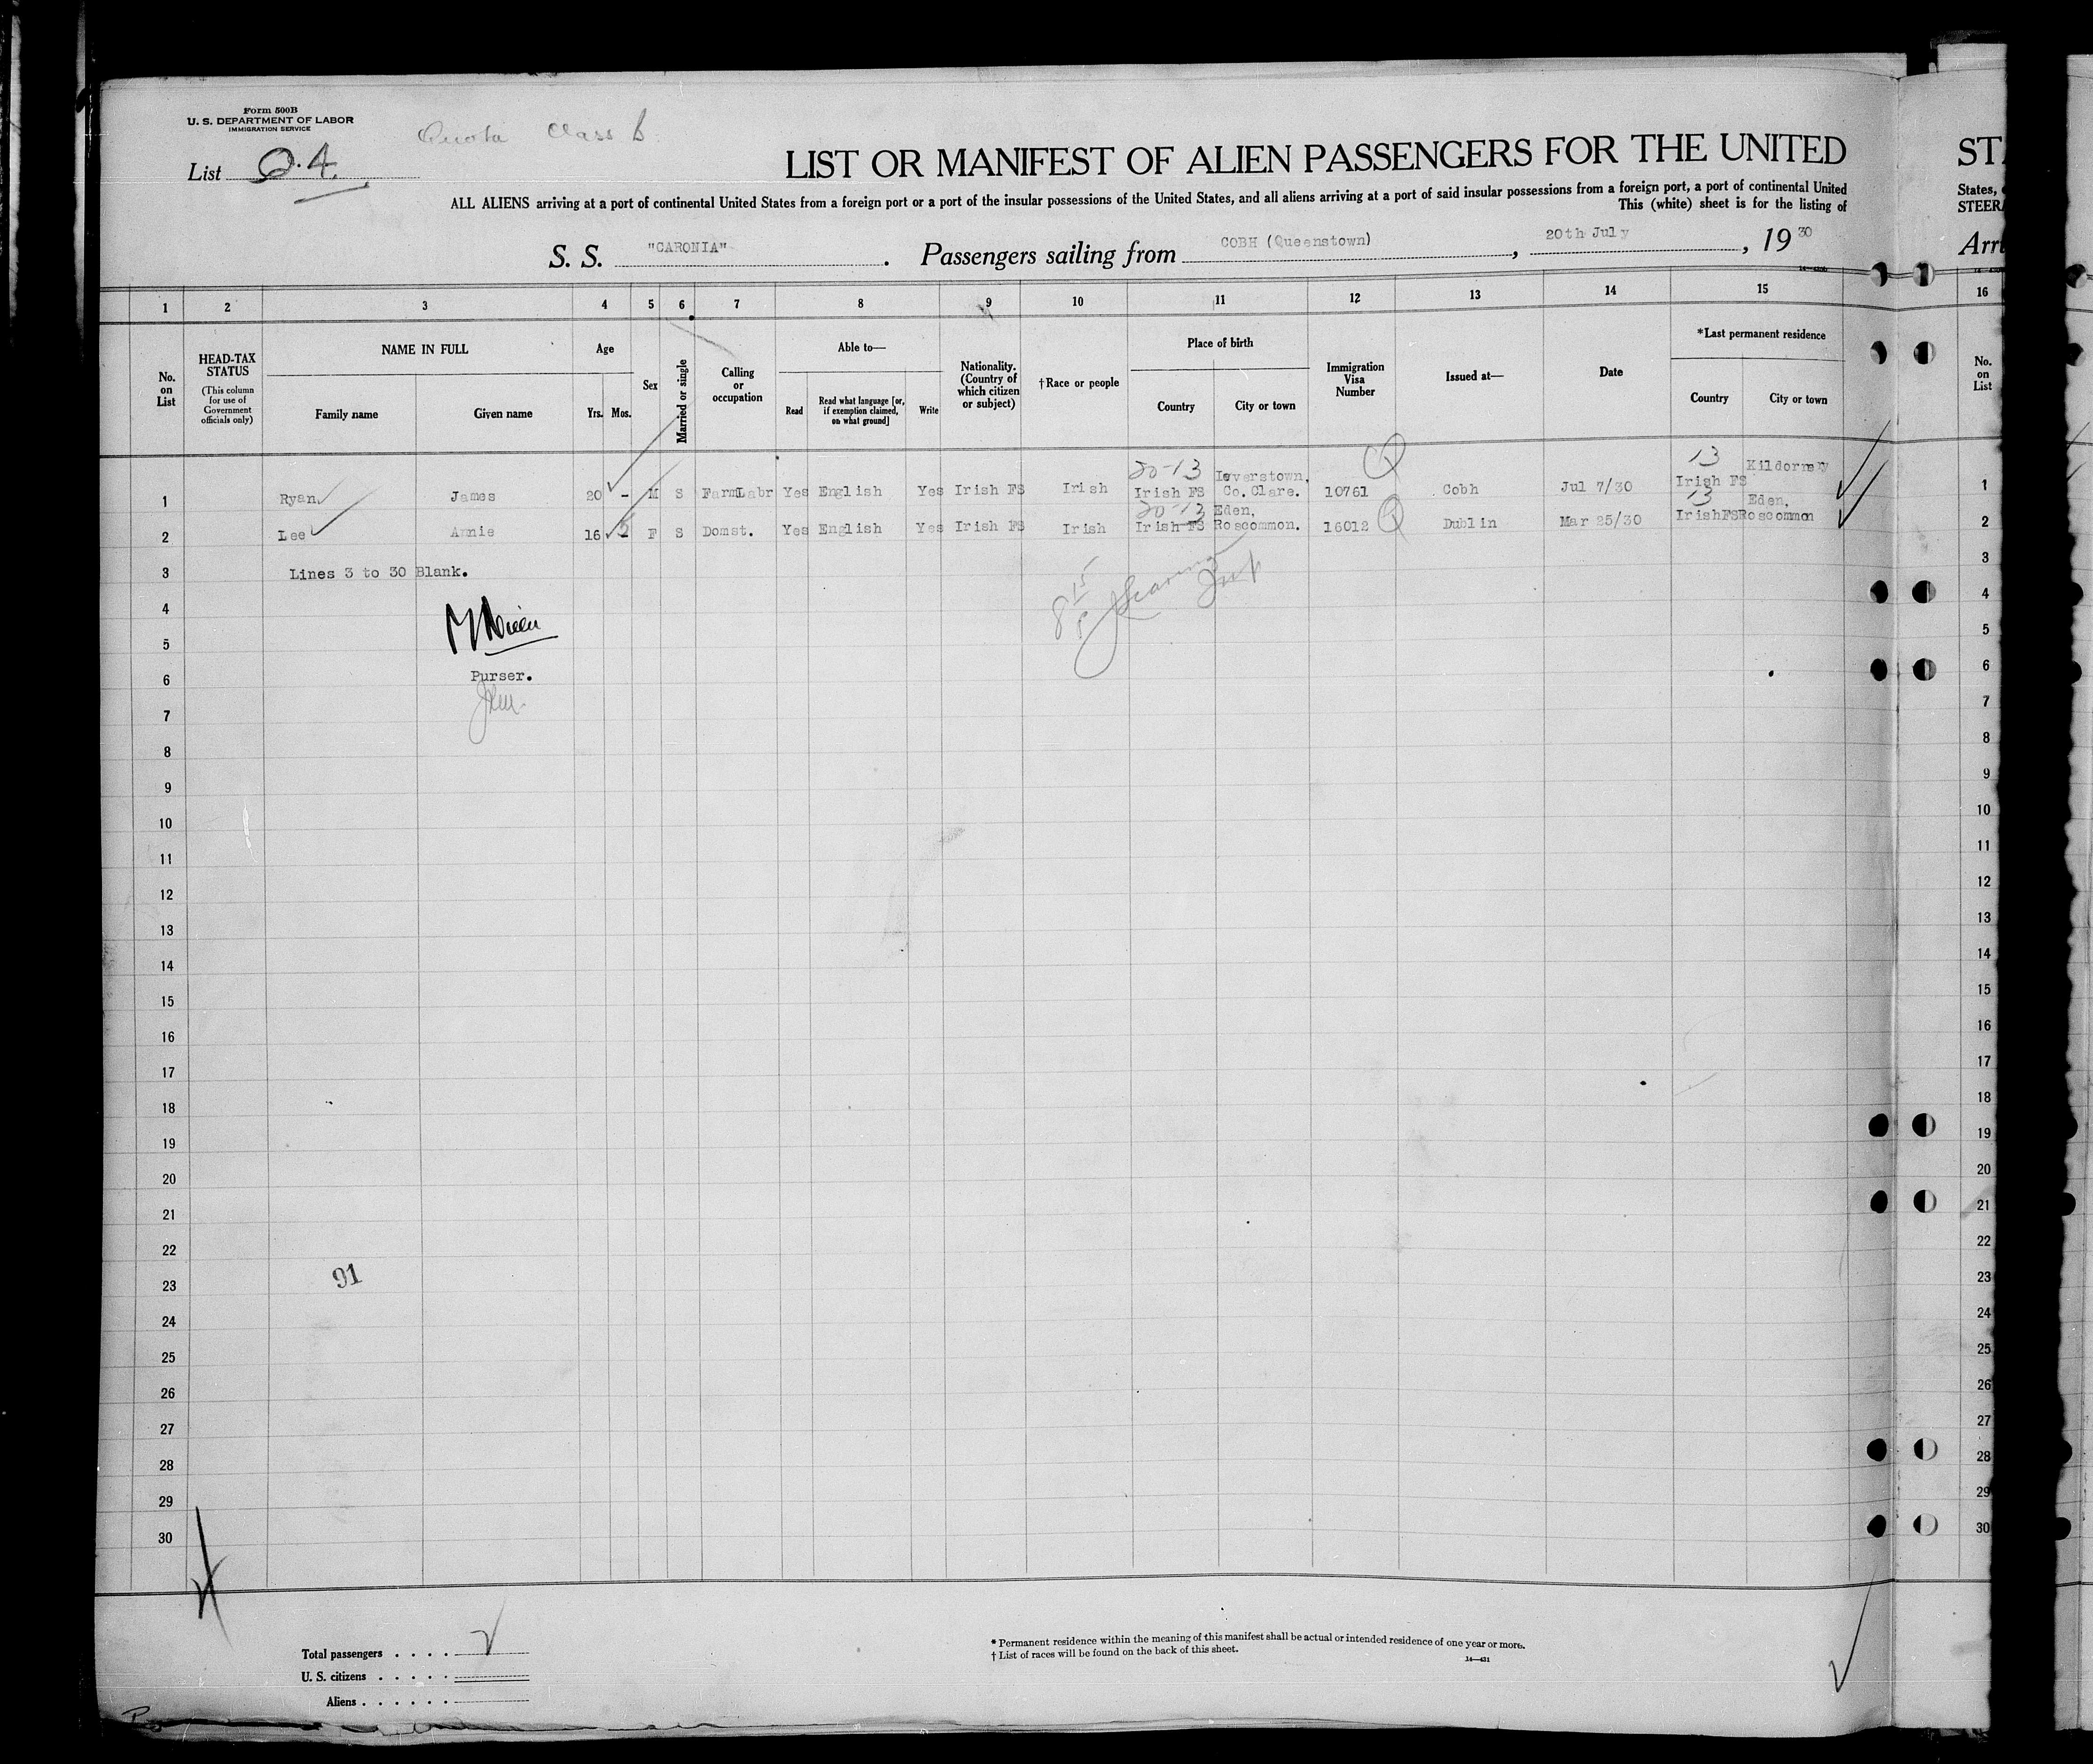 Form 500B
U. S. DEPARTMENT OF LABOR
IMMIGRATION SERVICE
Quota Class B
List Q.4.
LIST OR MANIFEST OF ALIEN PASSENGERS FOR THE UNITED
ALL ALIENS arriving at a port of continental United States from a foreign port or a port of the insular possessions of the United States, and all aliens arriving at a port of said insular possessions from a foreign port, a port of continental United
This (white) sheet is for the listing of
S. S. "CARONIA". Passengers sailing from COBH (Queenstown), 20th July, 1930
ST
States,
STEER
Arr
1 2 3 4 5 6 7 8 9 10 11 12 13 14 15 16
No. on List
HEAD-TAX STATUS (This column for use of Government officials only)
NAME IN FULL
Family name Given name
Age
Yrs. Mos.
Sex
Married or single
Calling or occupation
Able to—
Read Read what language [or, if exemption claimed, on what ground] Write
Nationality. (Country of which citizen or subject)
†Race or people
Place of birth
Country City or town
Immigration Visa Number
Issued at—
Date
*Last permanent residence
Country City or town
No. on List
20-13 Q 13
1 Ryan James 20 - M S FarmLabr Yes English Yes Irish FS Irish Irish FS Co. Clare. 10761 Cobh Jul 7/30 Irish FS 1
20-13 13
2 Lee Annie 16 5 F S Domst. Yes English Yes Irish FS Irish Irish FS Eden, Roscommon. 16012 Q Dublin Mar 25/30 IrishFS Eden, Roscommon 2
3 Lines 3 to 30 Blank. 3
4 4
5 5
6 Purser. 6
7 7
8 8
9 9
10 10
11 11
12 12
13 13
14 14
15 15
16 16
17 17
18 18
19 19
20 20
21 21
22 22
23 91 23
24 24
25 25
26 26
27 27
28 28
29 29
30 30
Total passengers . . . .
U. S. citizens . . . . .
Aliens . . . . . .
* Permanent residence within the meaning of this manifest shall be actual or intended residence of one year or more.
† List of races will be found on the back of this sheet.
14—431